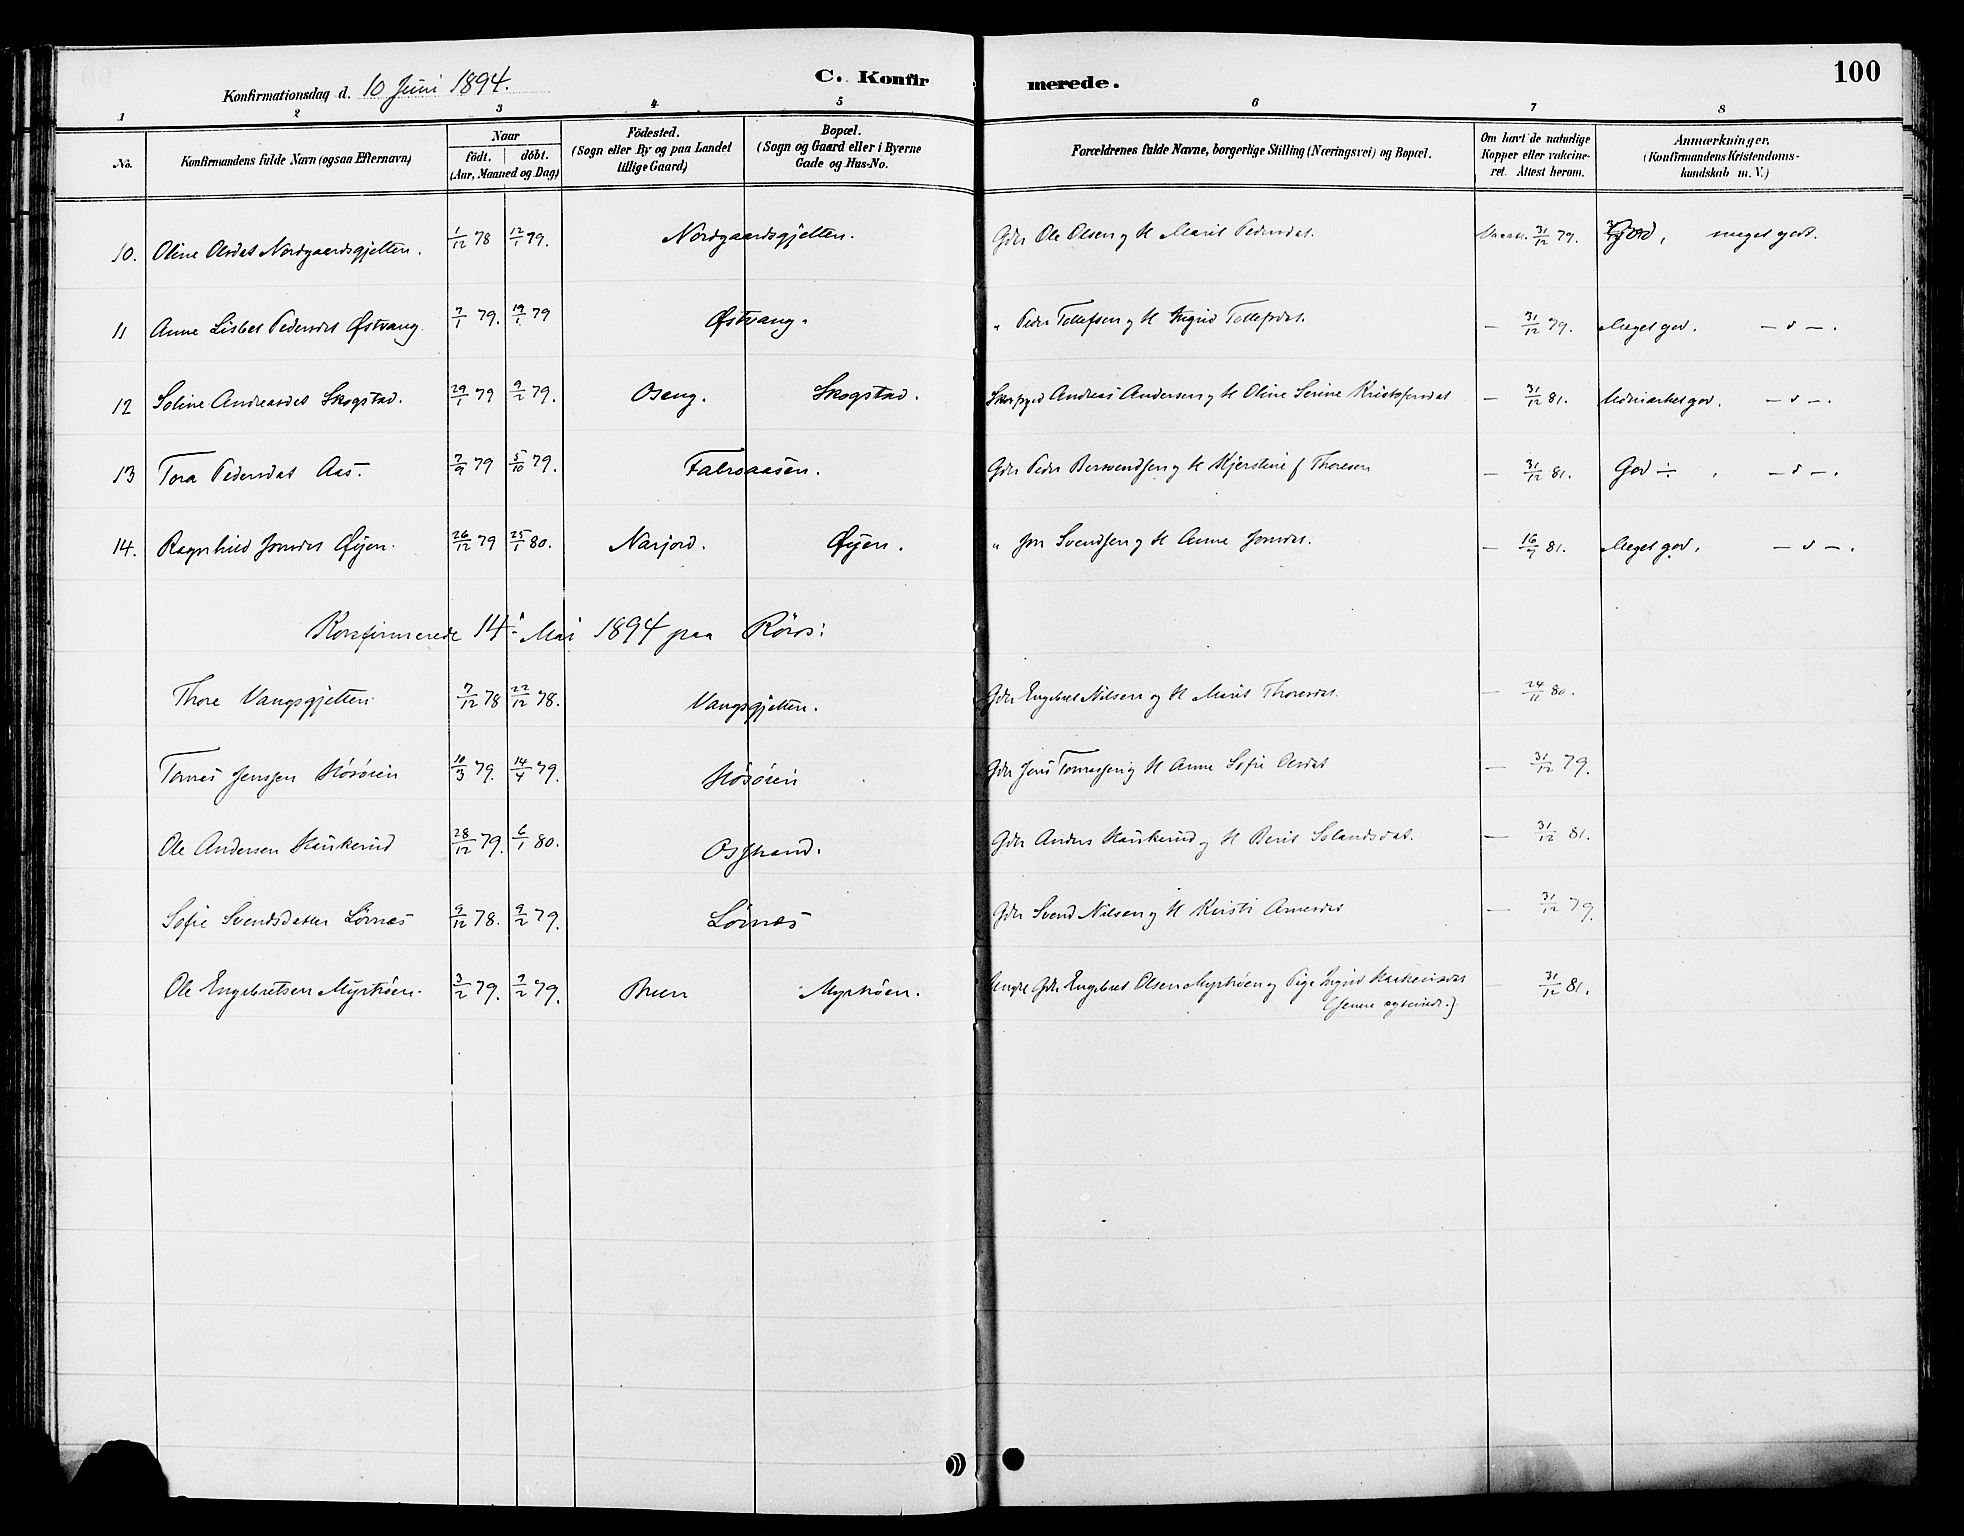 Konfirmationsdag d. 10 Juni 1894. C. Konfirmerede. 100
1 2 3 4 5 6 7 8
No. Konfirmandens fulde Navn (ogsaa Efternavn) Naar födt. döbt. (Aar, Maaned og Dag) Födested. (Sogn eller By og paa Landet tillige Gaard) Bopæl. (Sogn og Gaard eller i Byerne Gade og Hus-No. Forældrenes fulde Navne, borgerlige Stilling (Næringsvei) og Bopæl. Om havt de naturlige Kopper eller vakcineret. Attest herom. Anmærkninger. (Konfirmandens Kristendomskundskab m. V.)
10. Oline Olsdat Nordgaardsgjelten. 1/12 78 12/1 79. Nordgaardsgjelten. Gdr Ole Olsen og H Marit Pedersdat. 31/12 79. meget god.
11 Anne Lisbet Pedersdat Østvang. 7/1 79. 19/1 79 Østvang. " Peder Tollefsen og H Ingrid Tollefsdat. — 31/12 79. Meget god. — d —.
12 Soline Andreasdat Skogstad. 29/1 79 9/2 79. Oseng. Skogstad. Andreas Andersen og H Oline Serine Kristofersdat — 31/12 81. Udmærket god. — d —.
13 Tora Pedersdat Aas. 7/9 79 5/10 79. Falrsaasen. Gdr Peder og H Kjerstine Thoresen — 31/12 81. God ÷. — d —.
14. Ragnhild Jonsdat Øyen. 26/12 79 25/1 80. Narjord. Øyen. " Jon Svendsen og H Anne Jonsdat. — 16/7 81. Meget god. — d —.
Konfirmerede 14. Mai 1894 paa Röros:
Thore Vangsgjelten 7/12 78 22/12 78. Vangsgjelten. Gdr Engebret Nilsen og H Marit Thoresdat. — 24/11 80.
Tomas Jenssen Hösöien 10/3 79. 14/4 79. Hösöien Gdr Jens Tomassen og H Anne Sofie Olsdat — 31/12 79.
Ole Andersen Haukerud 28/12 79. 6/1 80. Osstrand. Gdr Anders Haukerud og H Berit — 31/12 81.
Sofie Svendsdatter Lörnæs 9/12 78. 9/2 79. Lörnæs Gdr Svend Nilsen og H Kirsti Arnesdat — 31/12 79.
Ole Engebretsen Myrtröen. 3/2 79. 7/2 79. Bruen Myrtröen. Ungk Gdr Engebret Olsen Myrtröen og Pige Ingrid Haakensdat — 31/12 81.
(senere egteviede.)